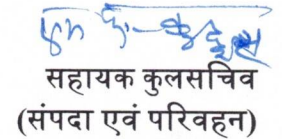 सहायक कुलसचिव
(संपदा एवं परिवहन)